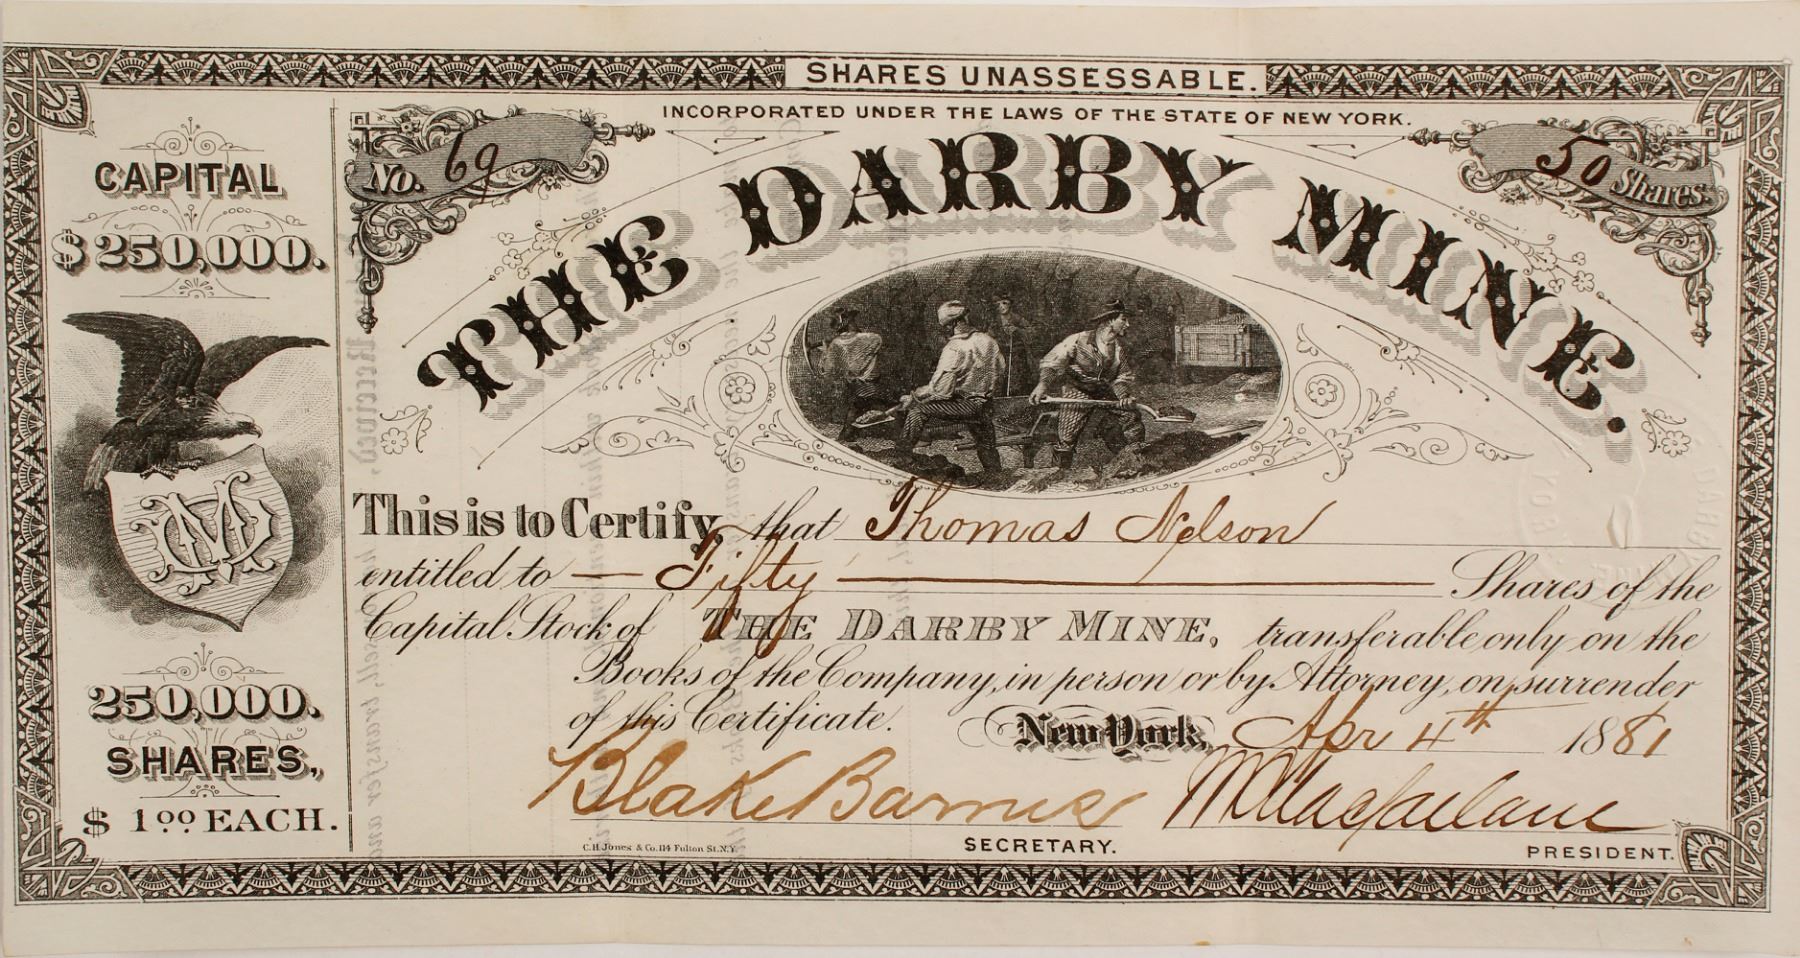 SHARES UNASSESSABLE.
INCORPORATED UNDER THE LAWS OF THE STATE OF NEW YORK.
No. 69
50 Shares.
THE DARBY MINE.
CAPITAL
$250,000.
DMC
250,000.
SHARES,
$1.00 EACH.
This is to Certify, that Thomas Nelson
entitled to — Fifty — Shares of the
Capital Stock of THE DARBY MINE, transferable only on the
Books of the Company, in person or by Attorney, on surrender
of this Certificate. New York, Apr 4th 1881
Blake Barnes
Macfarlane
SECRETARY.
PRESIDENT.
C.H. Jones & Co. 114 Fulton St. N.Y.